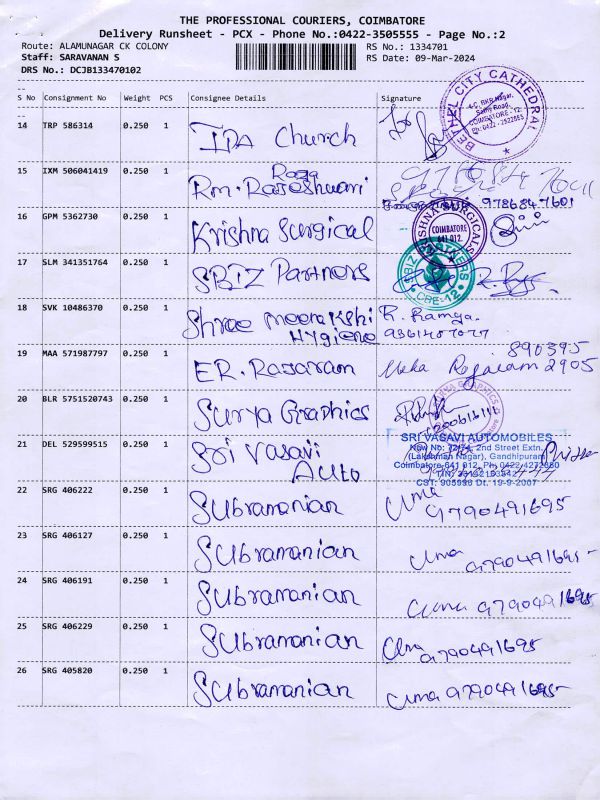 THE PROFESSIONAL COURIERS, COIMBATORE
Delivery Runsheet - PCX - Phone No.:0422-3505555 - Page No.:2
Route: ALAMUNAGAR CK COLONY
RS No.: 1334701
Staff: SARAVANAN S
RS Date: 09-Mar-2024
DRS No.: DCJB133470102
S No Consignment No Weight PCS Consignee Details Signature
14 TRP 586314 0.250 1 IPA Church
BETHEL CITY CATHEDRAL
COIMBATORE - 12.
15 IXM 506041419 0.250 1 Rm. Rajeshwari
9786847601
9786847601
16 GPM 5362730 0.250 1 Krishna Surgical
KRISHNA SURGICALS
COIMBATORE
641 012.
17 SLM 341351764 0.250 1 SBIZ Partners
SBIZ PARTNERS
CBE-12
18 SVK 10486370 0.250 1 Shree Meenakshi
Hygiene
R. Ramya.
19 MAA 571987797 0.250 1 ER. Rajaram
890395
2905
20 BLR 5751520743 0.250 1 Surya Graphics
GRAPHICS
21 DEL 529599515 0.250 1 Sri Vasavi
Auto
SRI VASAVI AUTOMOBILES
2nd Street Extn.
(Lakshman Nagar), Gandhipuram
Coimbatore-641 012. Ph: 0422-4272080
CST: 905936 Dt. 19-9-2007
22 SRG 406222 0.250 1 Subramanian Uma
9790491695
23 SRG 406127 0.250 1 Subramanian Uma 9790491695
24 SRG 406191 0.250 1 Subramanian Uma 9790491695
25 SRG 406229 0.250 1 Subramanian Uma 9790491695
26 SRG 405820 0.250 1 Subramanian Uma 9790491695